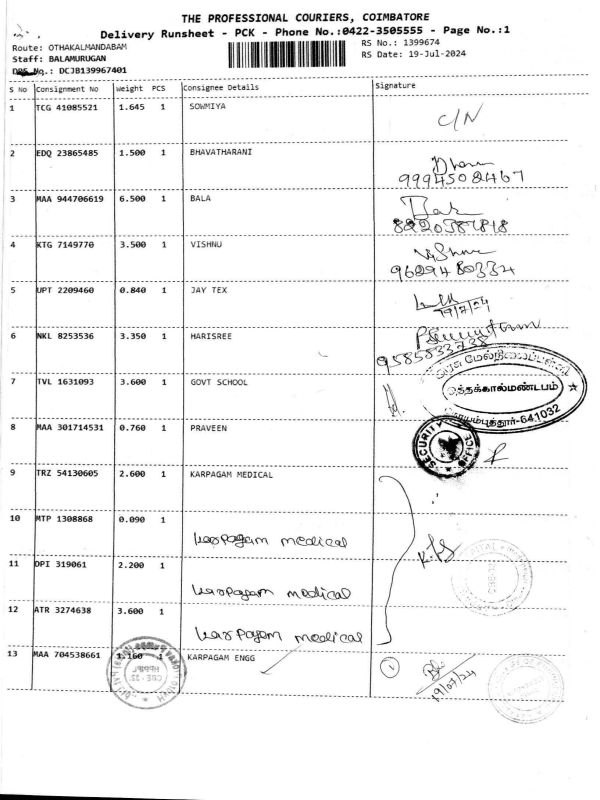 THE PROFESSIONAL COURIERS, COIMBATORE
Delivery Runsheet - PCK - Phone No.:0422-3505555 - Page No.:1
Route: OTHAKALMANDABAM
RS No.: 1399674
Staff: BALAMURUGAN
RS Date: 19-Jul-2024
DRS No.: DCJB139967401
S No Consignment No Weight PCS Consignee Details Signature
1 TCG 41085521 1.645 1 SOWMIYA C/N
2 EDQ 23865485 1.500 1 BHAVATHARANI
9994502467
3 MAA 944706619 6.500 1 BALA
8220387818
4 KTG 7149770 3.500 1 VISHNU
9629480334
5 UPT 2209460 0.840 1 JAY TEX
19/7/24
6 NKL 8253536 3.350 1 HARISREE
9585833738
அரசு மேல்நிலைப்பள்ளி
7 TVL 1631093 3.600 1 GOVT SCHOOL
ஒத்தக்கால்மண்டபம்
கோயம்புத்தூர்-641032
8 MAA 301714531 0.760 1 PRAVEEN
SECURITY OFFICE
9 TRZ 54130605 2.600 1 KARPAGAM MEDICAL
10 MTP 1308868 0.090 1
karpagam medical
11 DPI 319061 2.200 1
karpagam medical
12 ATR 3274638 3.600 1
karpagam medical
13 MAA 704538661 1.160 1 KARPAGAM ENGG 1
19/07/24